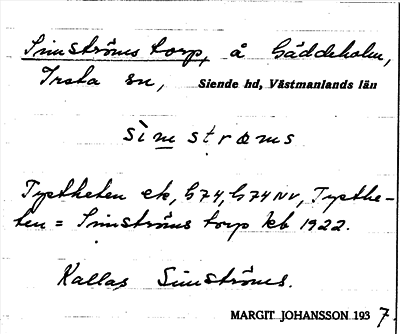 Simströms torp, å Gäddeholm,
Irsta sn, Siende hd, Västmanlands län
sìmstrœms
Tystheten ek, G74, G74NV, Tysthe-
ten = Simströms torp kb 1922.
Kallas Simströms.
MARGIT JOHANSSON 1937.